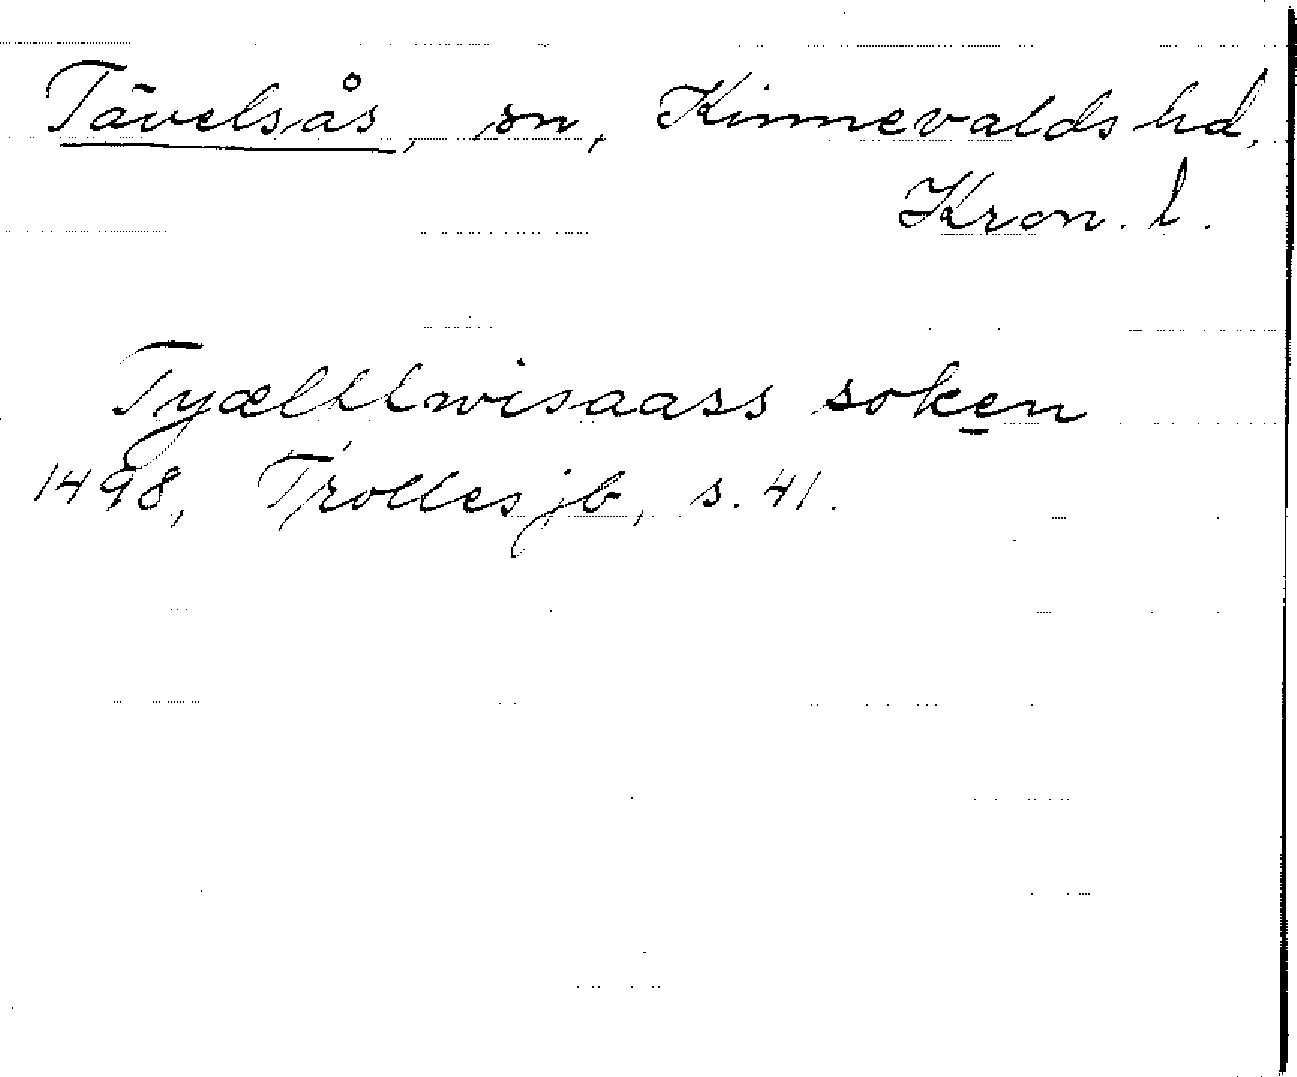 Tävelsås, sn, Kinnevalds hd,
Kron. l.
Tyælllwisaass soken
1498, Trolles jb, s. 41.